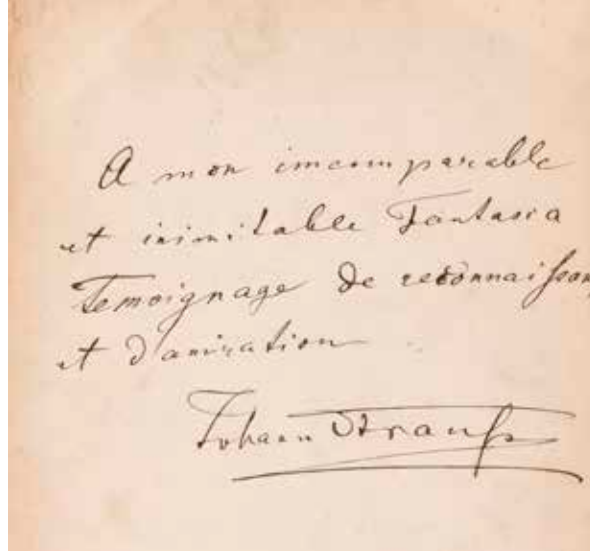 A mon imcomparable
et inimitable Fantasia
Temoignage de reconnaissan
et d'amiration
Johann Strauss